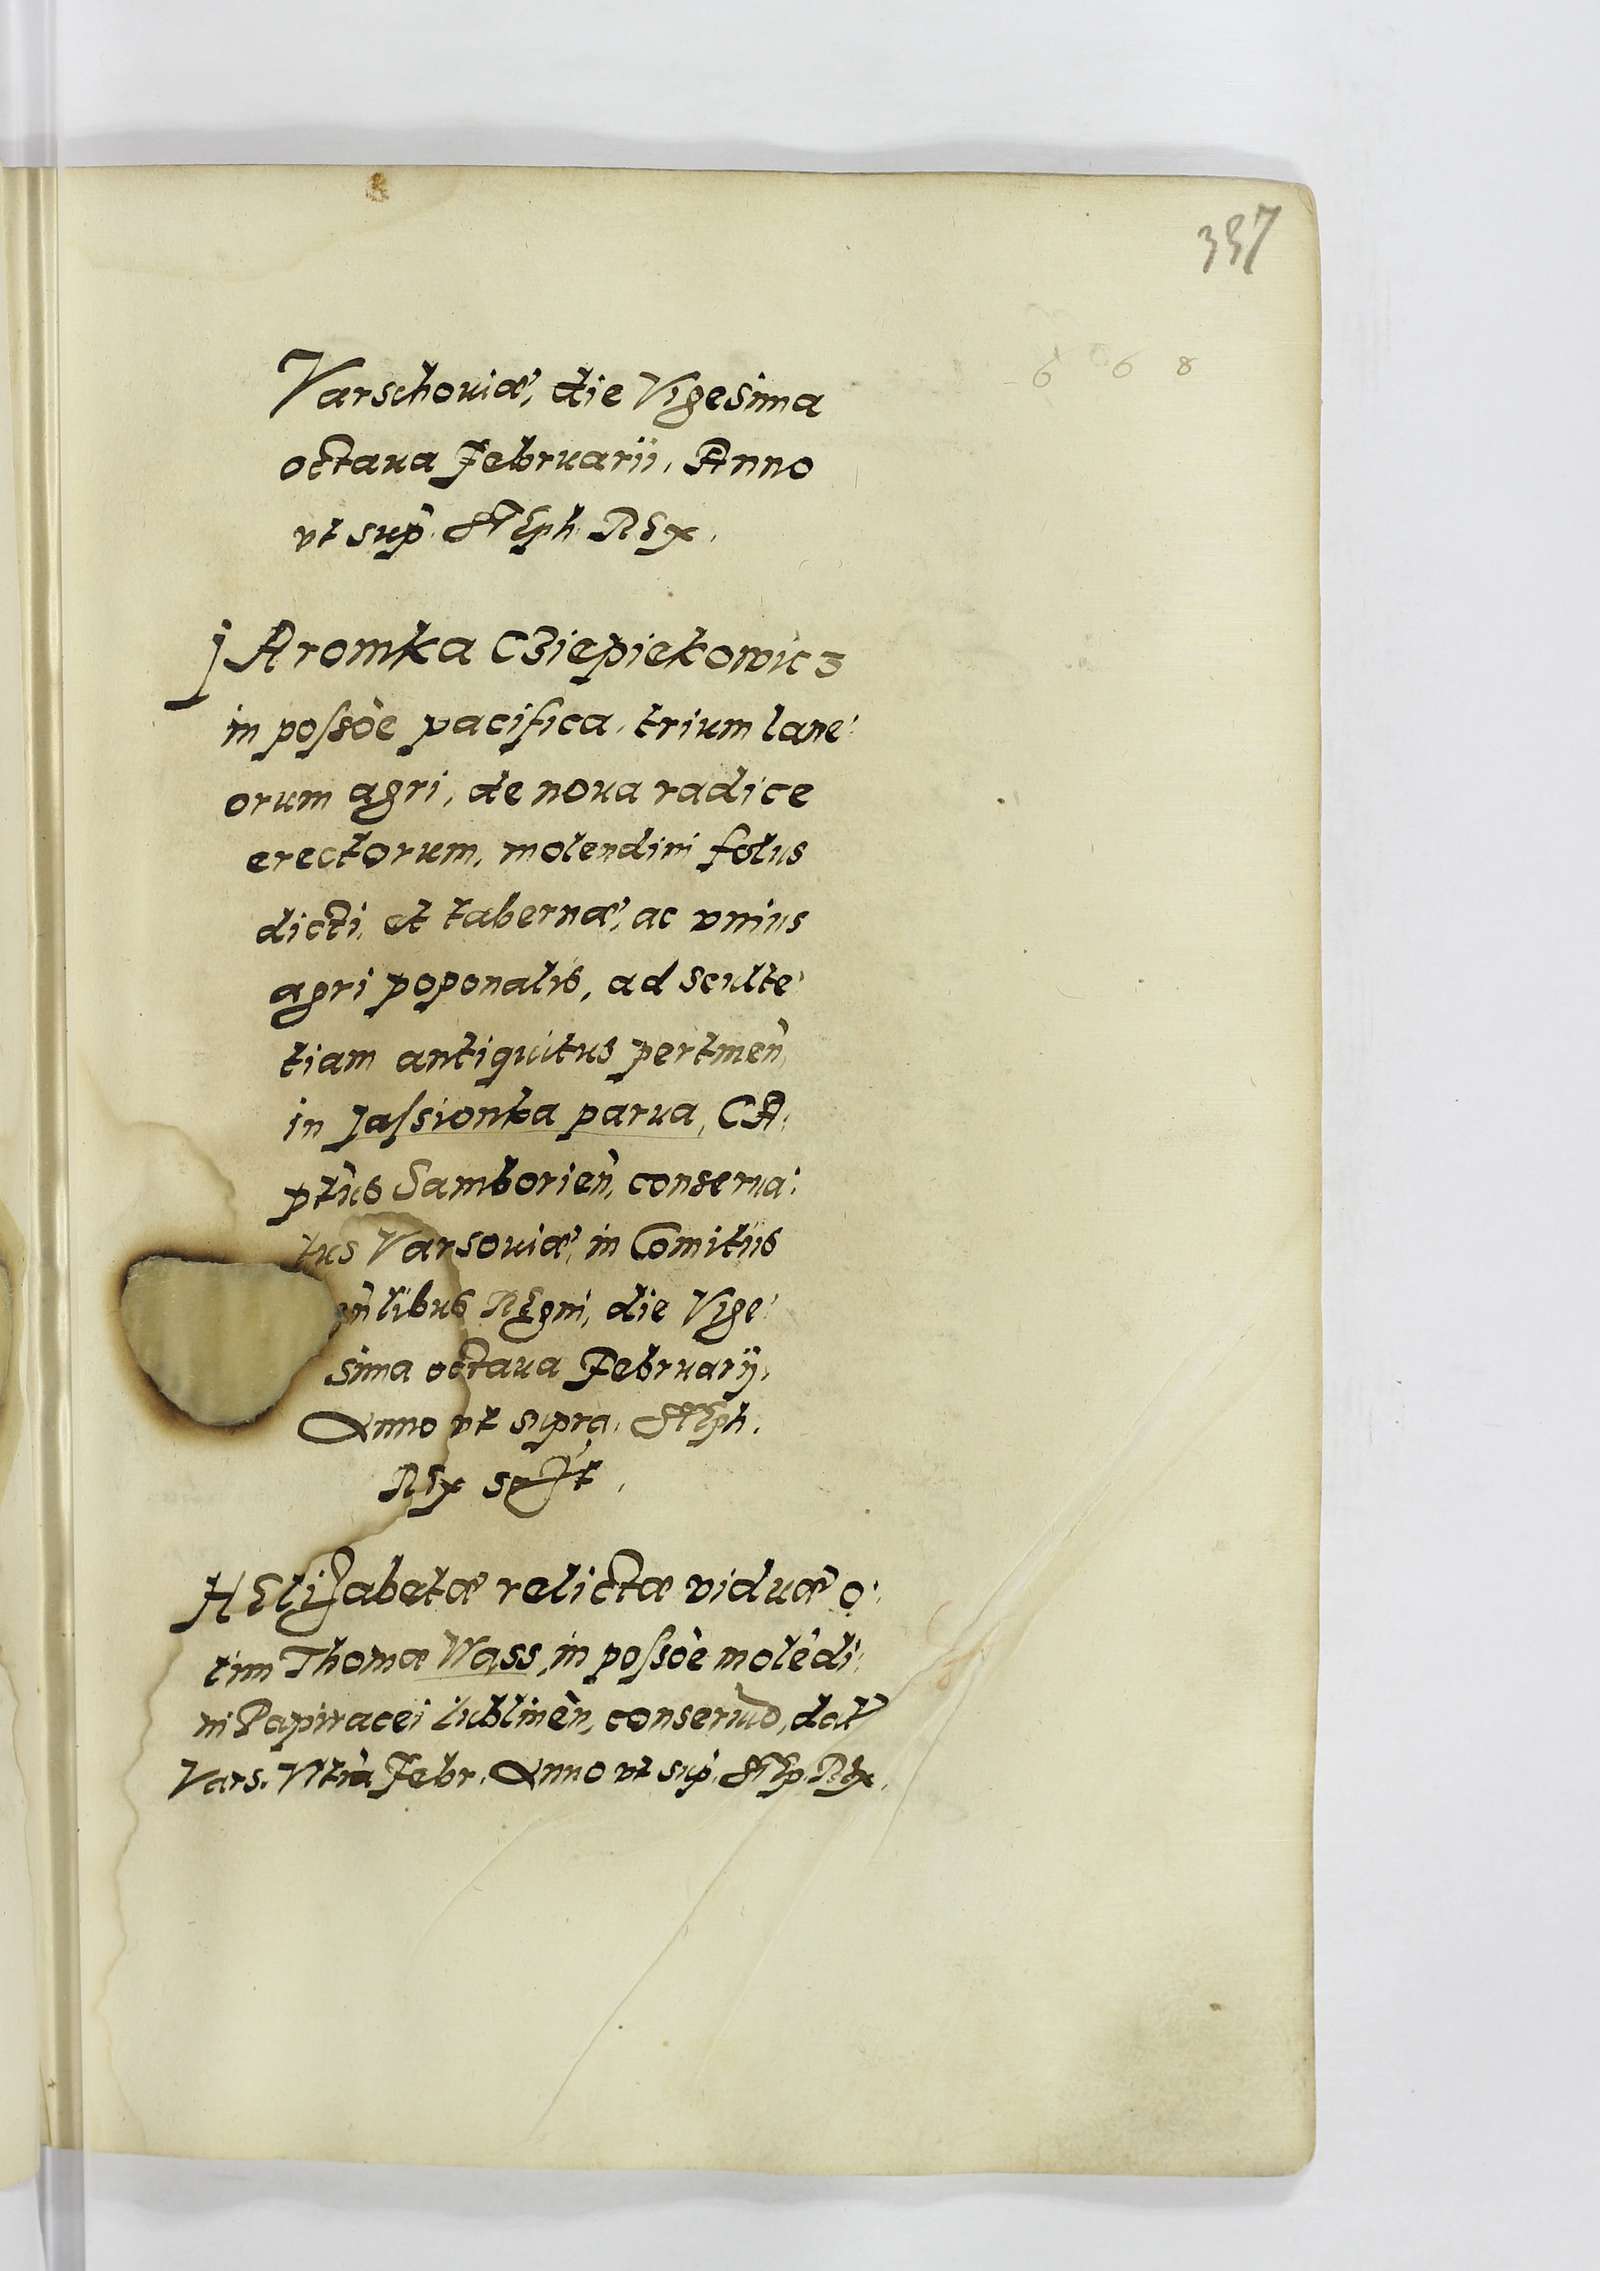 357
6 6 8
Varschouiæ, die Vigesima
octaua Februarii, Anno
vt sup. Steph. Rex.
JAromka Cziepiekowicz
in possõe pacifica, trium lane:
orum agri, de noua radice
erectorum, molendini folus
dicti, et tabernæ, ac vnius
agri poponalis, ad sculte:
tiam antiquitus pertineñ,
in Jassionka parua, CA:
ptus Samborieñ, conserua:
tus Varsouiæ, in Comitiis
gñlibus Regni, die Vige:
sima octaua Februarij,
Anno vt supra. Steph.
Rex sst.
HElizabetæ relictæ viduæ o:
lim Thomæ Wass, in possõe molẽdi:
ni Papiracei lublineñ, conseruõ, dat
Vars. Vltia Febr. Anno vt sup. Step. Rex.